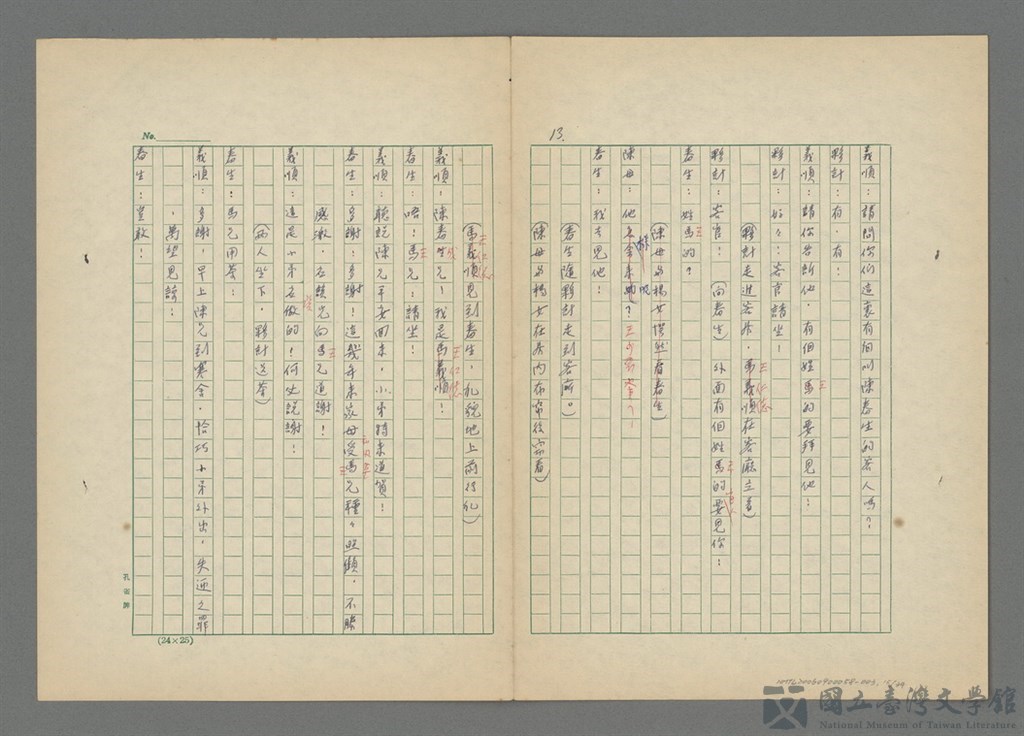 13.
義順：請問你們這裏有個叫陳春生的客人嗎？
夥計：有，有：
義順：請你告訴他，有個姓馬的要拜見他：
夥計：好々：客官請坐！
（夥計走進客房，馬義順在客廳立着）
夥計：客官！（向春生）外面有個姓馬的要見你：
春生：姓馬的？
（陳母与楊女愕然看春生）
陳母：他
春生：我去見他！
（春生隨夥計走到客廳。）
（陳母与楊女在房內布帘後 看）
（馬義順見到春生，礼貌地上前行礼）
義順：陳春生兄！我是馬義順！
王仁德
春生：唔！馬兄：請坐！
義順：聽説陳兄平安回來，小弟特來道賀！
春生：多謝：多謝！這幾年來家母受馬兄種々照顧，不勝
感激，在職先向馬兄道謝！
義順：這是小弟應做的！何必説謝！
（两人坐下，夥計送茶）
春生：馬兄用茶：
義順：多謝，早上陳兄到寒舍，恰巧小弟外出，失迎之罪
，萬望見諒！
春生：豈敢！
No.
孔雀牌
(24×25)
國立臺灣文學館
National Museum of Taiwan Literature